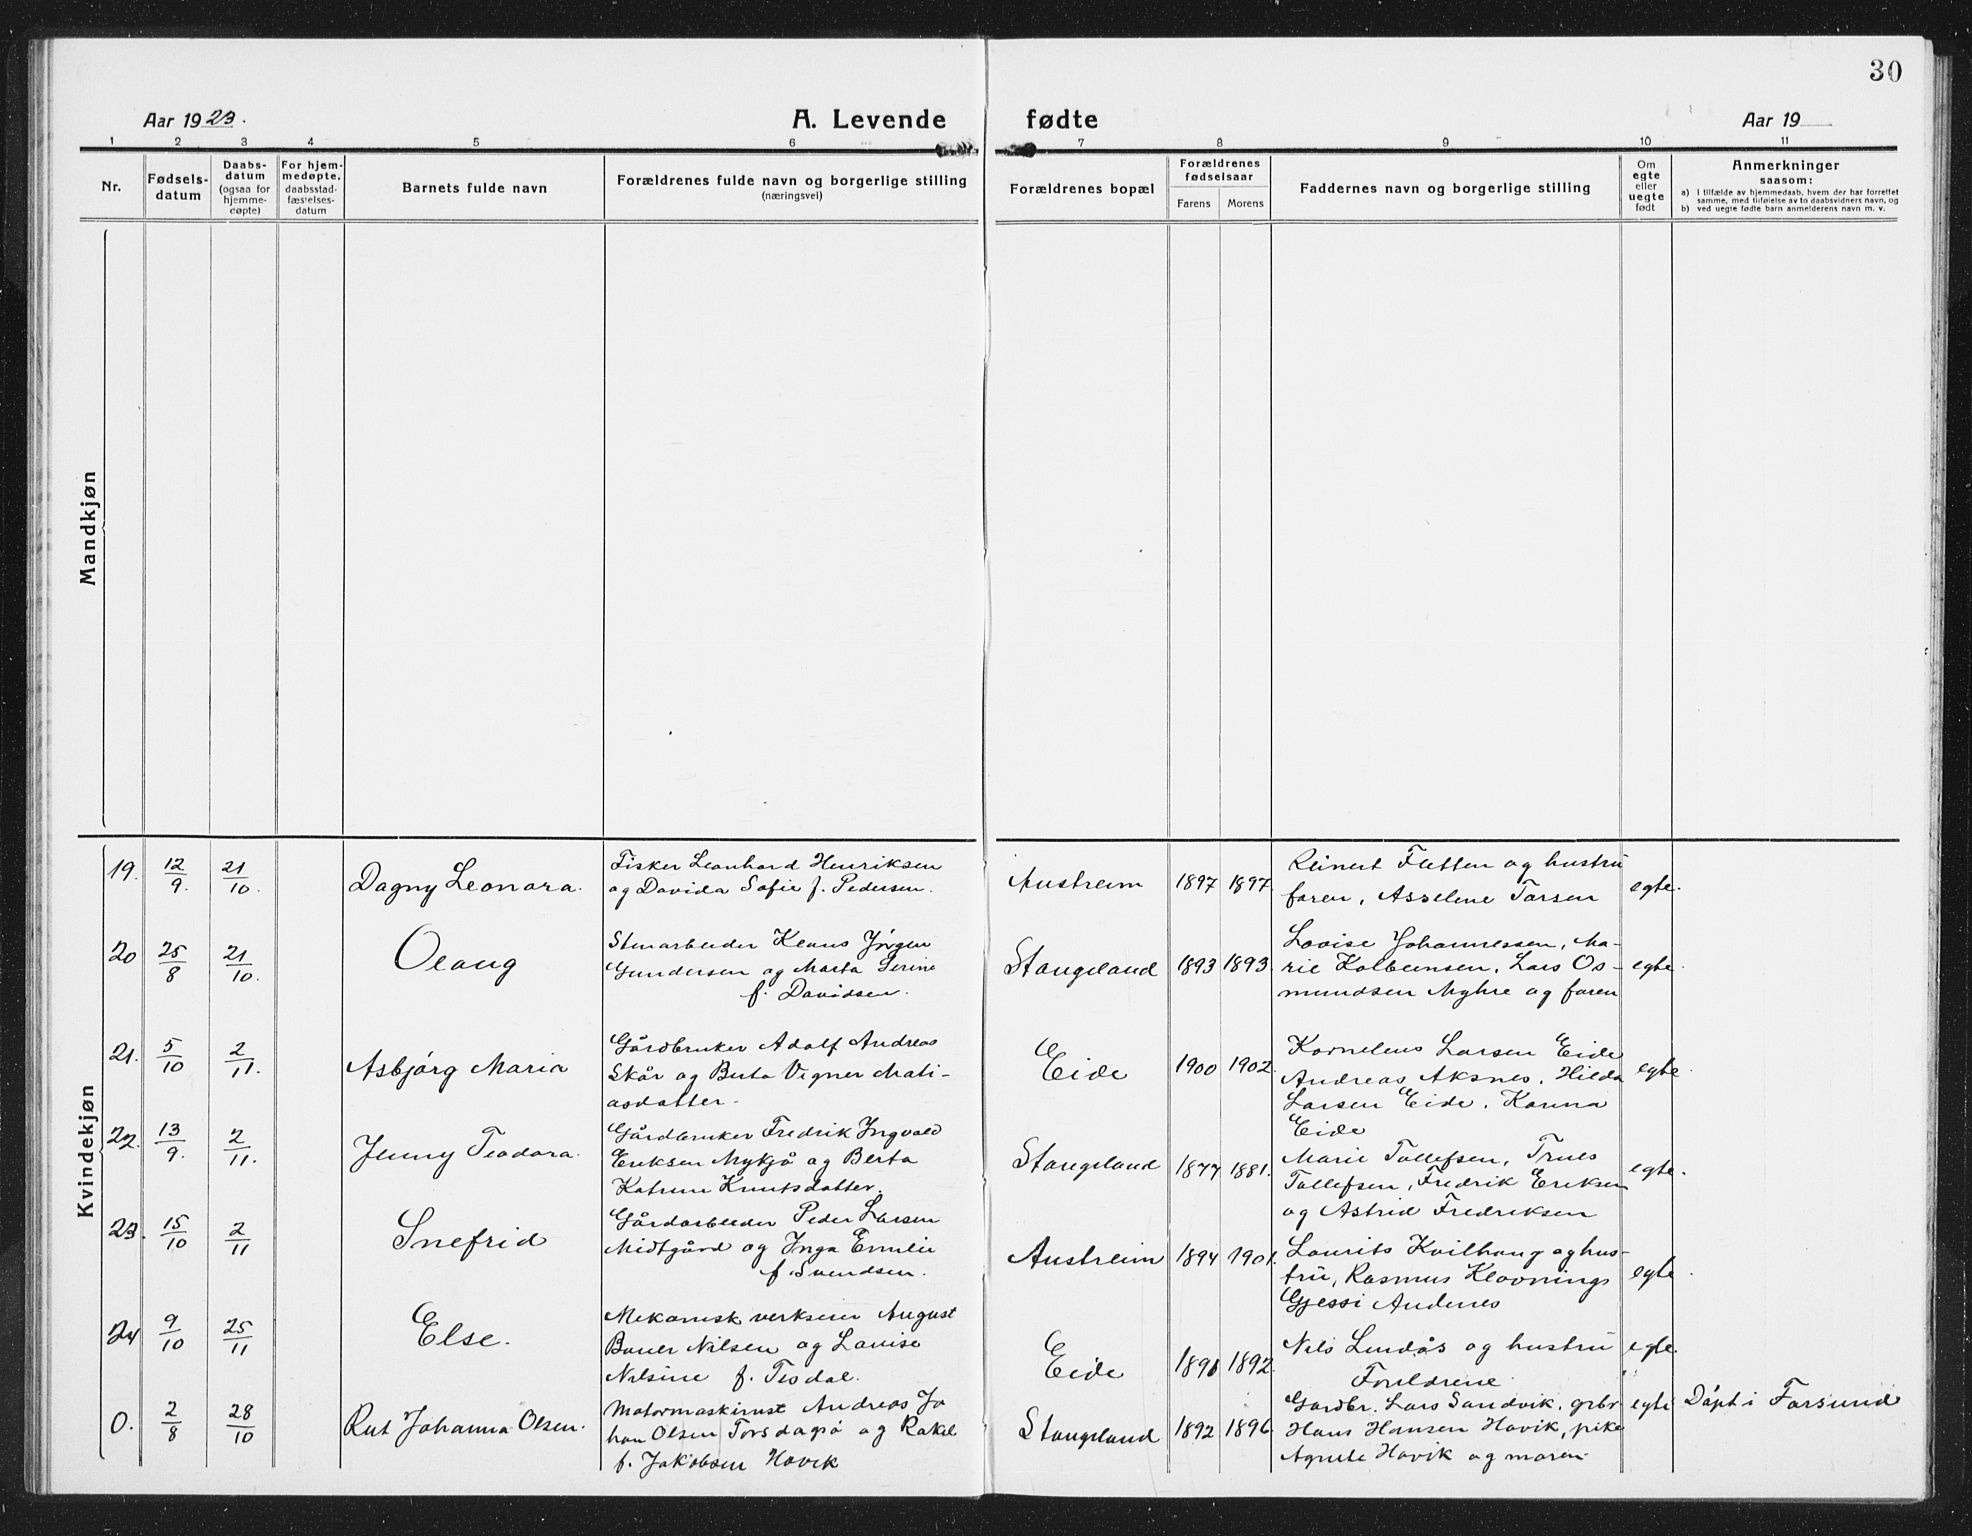 30
Aar 1923.
A. Levende fødte
Aar 19
1 2 3 4 5 6 7 8 9 10 11
Nr.
Fødsels-
datum
Daabs-
datum
(ogsaa for
hjemme-
døpte)
For hjem-
medøpte,
daabsstad-
fæstelses-
datum
Barnets fulde navn
Forældrenes fulde navn og borgerlige stilling
(næringsvei)
Forældrenes bopæl
Forældrenes
fødselsaar
Farens Morens
Faddernes navn og borgerlige stilling
Om
egte
eller
uegte
født
Anmerkninger
saasom:
a) I tilfælde av hjemmedaab, hvem der har forrettet
samme, med tilføielse av to daabsvidners navn, og
b) ved uegte fødte barn anmelderens navn m. v.
Mandkjøn
Kvindekjøn
19. 12/9. 21/10.
Dagny Leonora.
Fisker Leonhard Henriksen
og Davida Sofie f. Pedersen.
Austreim
1897 1897.
Reinert Fletten og hustru
faren, Asseline Tarsen
egte.
20 25/8 21/10.
Olaug
Stenarbeider Klaus Jørgen
Gundersen og Marta Serine
f. Davidsen.
Stangeland
1893 1893.
Lovise Johannessen, Ma-
rie Kolbeinsen, Lars Os-
mundsen Myhre og faren
egte.
21. 5/10 2/11.
Asbjørg Maria
Gårdbruker Adolf Andreas
Skår og Berta Vigner Mati-
asdatter.
Eide
1900 1902.
Kornelius Larsen Eide
Andreas Aksnes, Hilda
Larsen Eide, Karina
Eide
egte.
22. 13/9. 2/11.
Jenny Teodora.
Gårdbruker Fredrik Ingvald
Eriksen Mykjå og Berta
Katrine Knutsdatter.
Stangeland
1877 1881.
Marie Tollefsen, Truls
Tollefsen, Fredrik Eriksen
og Astrid Fredriksen
egte.
23. 15/10 2/11
Snefrid
Gårdarbeider Peder Larsen
Midtgård og Inga Emilie
f. Svendsen.
Austreim
1894 1901.
Laurits Kvilhaug og hus-
tru, Rasmus Klovnings
Gjessi Andenes
egte.
24 9/10 25/11
Else.
Mekanisk verkseier August
Nilsen og Lovise
Nilsine f. Tesdal.
Eide
1891 1892.
Nils Lindås og hustru
Foreldrene
egte.
0. 2/8 28/10
Rut Johanna Olsen.
Motormaskinist Andreas Jo
han Olsen Torsdagsø og Rakel
f. Jakobsen Hovik
Stangeland
1892 1896.
Gardbr. Lars Sandvik, grbr
Hans Hansen Hovik, pike
Agnete Hovik og moren.
egte
Døpt i Farsund